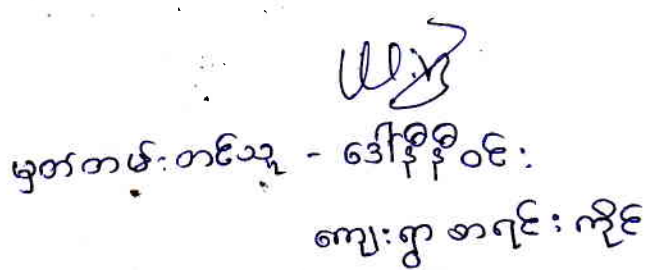 မှတ်တမ်းတင်သူ - ဒေါ်နီနီဝင်း
ကျေးရွာစာရင်းကိုင်